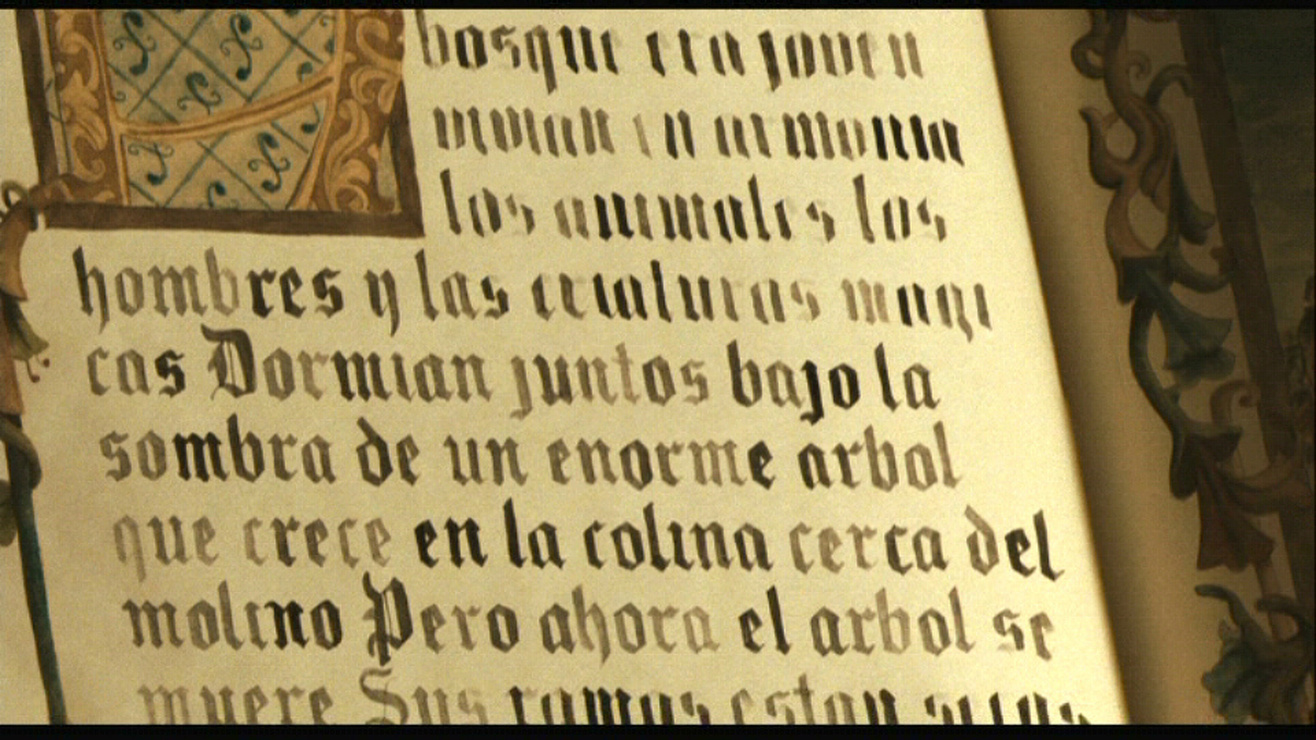 bosque era joven
vivian en armonia
los animales los
hombres y las criaturas magi
cas Dormian juntos bajo la
sombra de un enorme arbol
que crece en la colina cerca del
molino Pero ahora el arbol se
muere Sus ramas estan secas